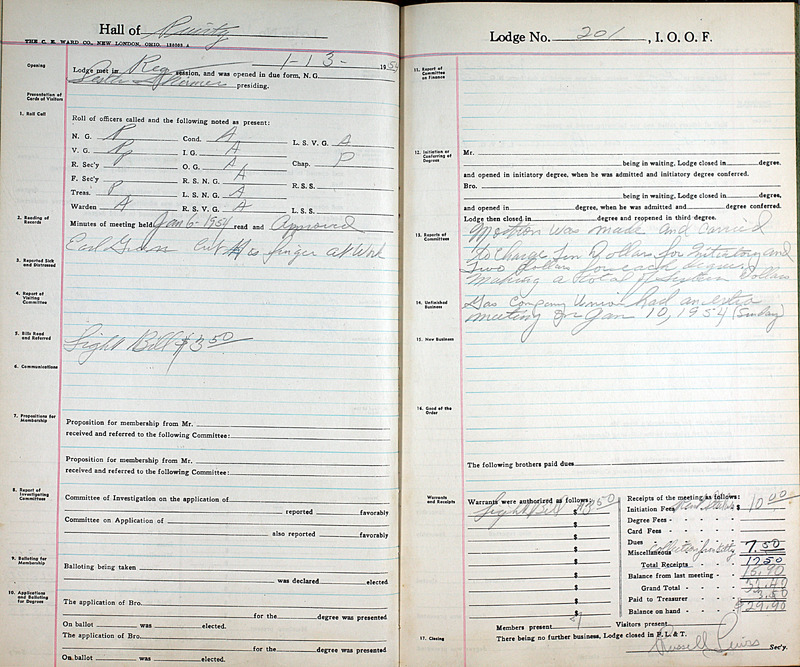 Hall of
THE C. E. WARD CO., NEW LONDON, OHIO.
Opening
Lodge met in Reg session, and was opened in due form, N. G. 1-13- 1954
presiding.
Presentation of Cards of Visitors
1. Roll Call
Roll of officers called and the following noted as present:
N. G. P Cond. A L. S. V. G. A
V. G. P I. G. A Chap. P
R. Sec'y O. G. A
F. Sec'y R. S. N. G. A R. S. S.
Treas. P L. S. N. G. A
Warden A R. S. V. G. A L. S. S.
2. Reading of Records
Minutes of meeting held Jan 6-1954 read and Approved
Earl Cut His finger at Work
3. Reported Sick and Distressed
4. Report of Visiting Committee
5. Bills Read and Referred
Light Bill $3.50
6. Communications
7. Propositions for Membership
Proposition for membership from Mr.
received and referred to the following Committee:
Proposition for membership from Mr.
received and referred to the following Committee:
8. Report of Investigating Committees
Committee of Investigation on the application of
reported favorably
Committee on Application of
also reported favorably
9. Balloting for Membership
Balloting being taken
was declared elected
10. Applications and Balloting for Degrees
The application of Bro.
for the degree was presented
On ballot was elected.
The application of Bro.
for the degree was presented
On ballot was elected.
Lodge No. 201, I. O. O. F.
11. Report of Committee on Finance
12. Initiation or Conferring of Degrees
Mr.
being in waiting, Lodge closed in degree,
and opened in initiatory degree, when he was admitted and initiatory degree conferred.
Bro.
being in waiting, Lodge closed in degree,
and opened in degree, when he was admitted and degree conferred.
Lodge then closed in degree and reopened in third degree.
13. Reports of Committees
Motion was made and Carried
to Charge Ten Dollars for Initiatory and
Two dollars for each degree
making a total of sixteen Dollars
14. Unfinished Business
Gas Company Union had an extra
meeting on Jan 10, 1954 (Sunday)
15. New Business
16. Good of the Order
The following brothers paid dues
Warrants and Receipts
Warrants were authorized as follows:
Light Bill $3.50
$
$
$
$
$
$
$
$
Receipts of the meeting as follows:
Initiation Fees $10.00
Degree Fees
Card Fees
Dues
Miscellaneous 7.50
Total Receipts 17.50
Balance from last meeting 15.90
Grand Total 33.40
Paid to Treasurer 3.50
Balance on hand $29.90
Members present Visitors present
17. Closing
There being no further business, Lodge closed in F. L. & T.
Russell Lewis Sec'y.